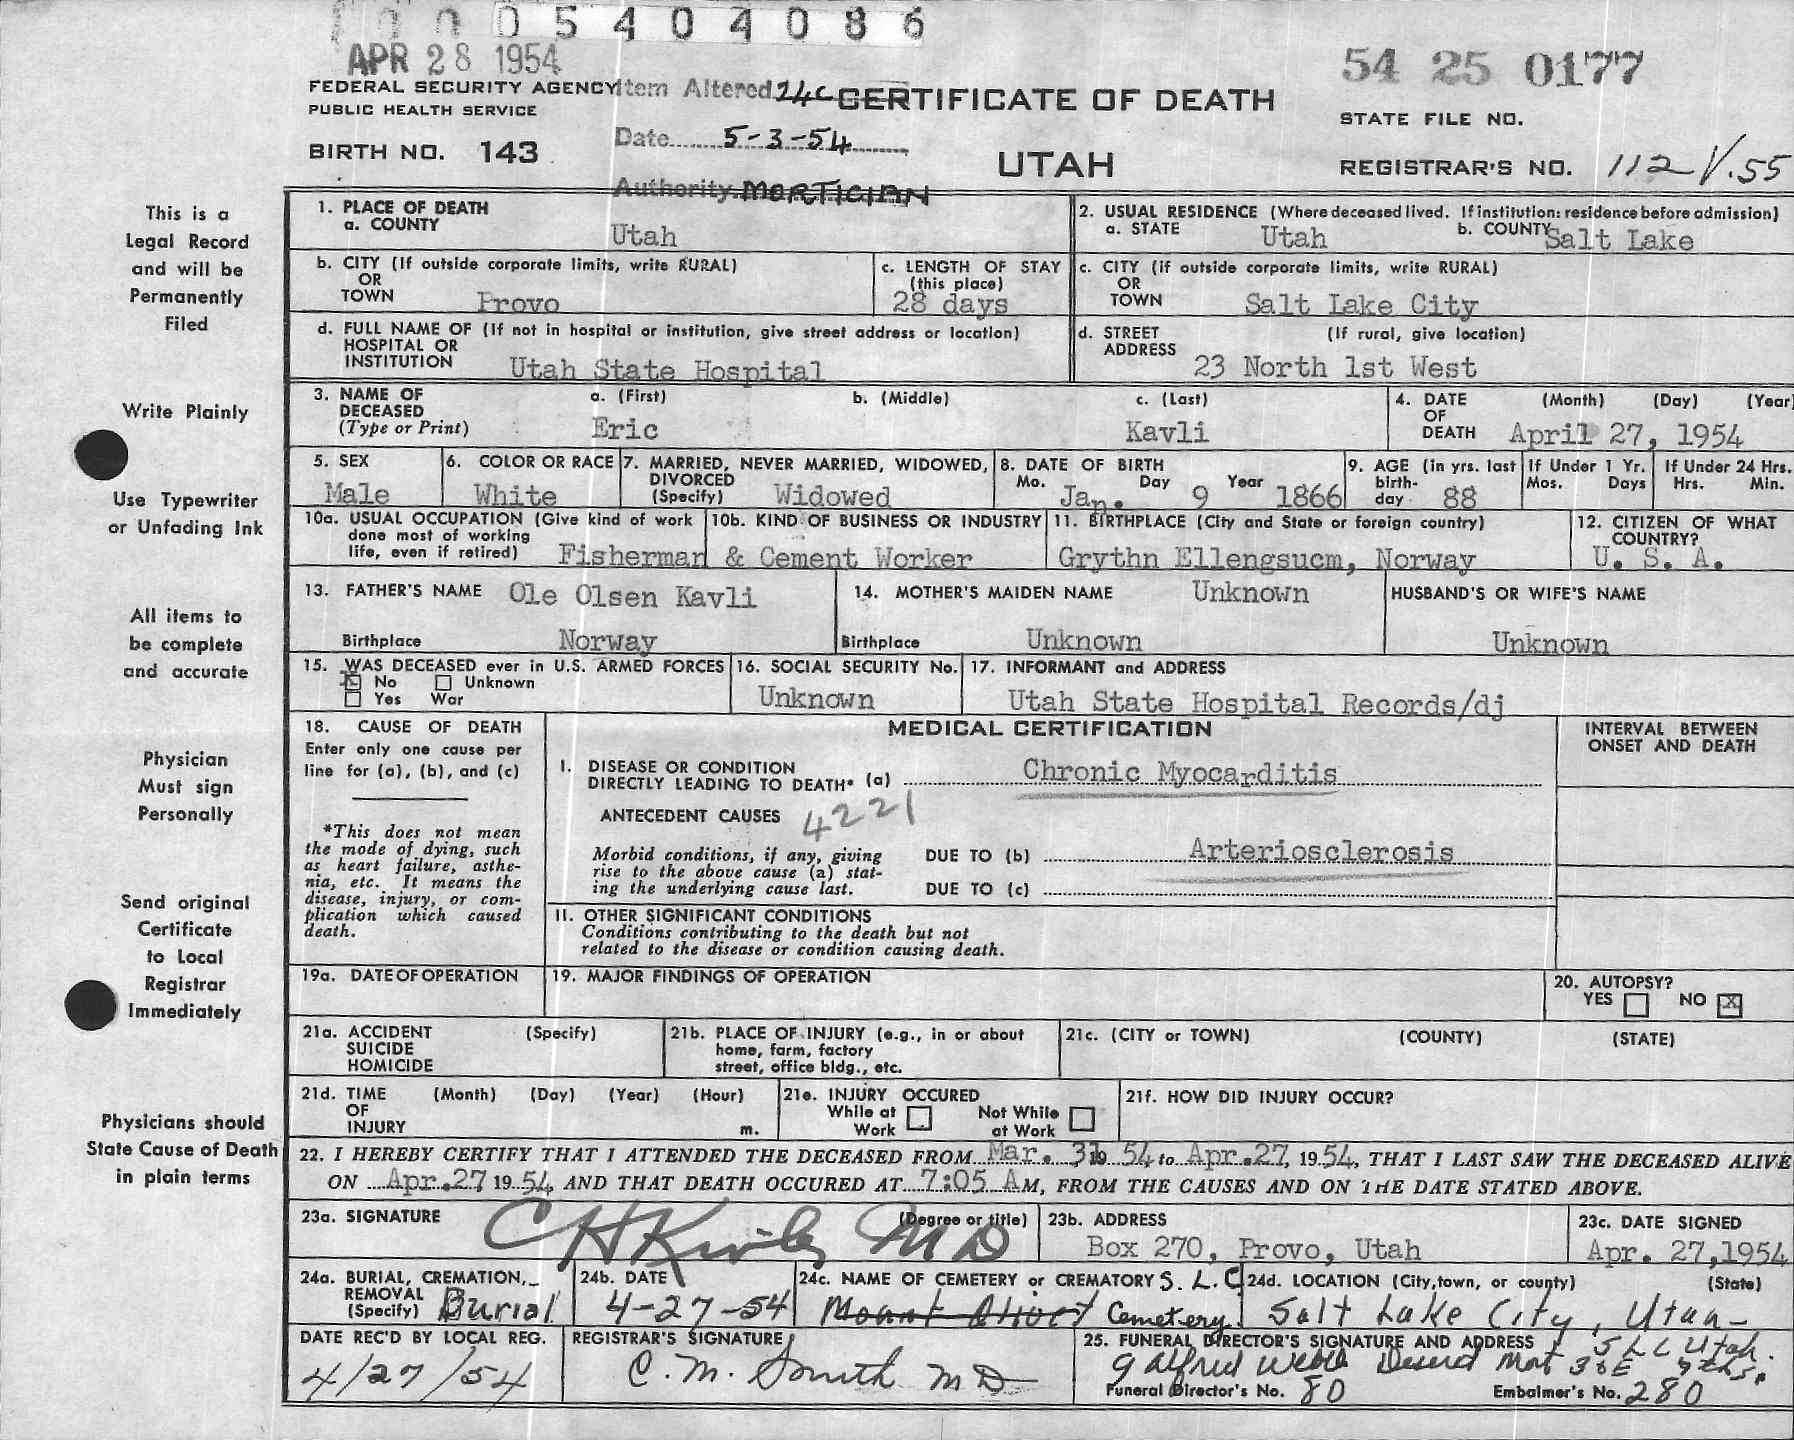 0 0 0 5 4 0 4 0 8 6
APR 28 1954
54 25 0177
FEDERAL SECURITY AGENCY
PUBLIC HEALTH SERVICE
Item Altered 24c
CERTIFICATE OF DEATH
STATE FILE NO.
BIRTH NO. 143
Date 5-3-54
UTAH
REGISTRAR'S NO. 112 V.55
Authority MORTICIAN
This is a
Legal Record
and will be
Permanently
Filed
Write Plainly
Use Typewriter
or Unfading Ink
All items to
be complete
and accurate
Physician
Must sign
Personally
Send original
Certificate
to Local
Registrar
Immediately
Physicians should
State Cause of Death
in plain terms
1. PLACE OF DEATH
a. COUNTY Utah
2. USUAL RESIDENCE (Where deceased lived. If institution: residence before admission)
a. STATE Utah b. COUNTY Salt Lake
b. CITY (If outside corporate limits, write RURAL)
OR
TOWN Provo
c. LENGTH OF STAY
(this place)
28 days
c. CITY (If outside corporate limits, write RURAL)
OR
TOWN Salt Lake City
d. FULL NAME OF (If not in hospital or institution, give street address or location)
HOSPITAL OR
INSTITUTION Utah State Hospital
d. STREET (If rural, give location)
ADDRESS 23 North 1st West
3. NAME OF
DECEASED
(Type or Print)
a. (First) b. (Middle) c. (Last)
Eric Kavli
4. DATE (Month) (Day) (Year)
OF
DEATH April 27, 1954
5. SEX
Male
6. COLOR OR RACE
White
7. MARRIED, NEVER MARRIED, WIDOWED,
DIVORCED
(Specify) Widowed
8. DATE OF BIRTH
Mo. Day Year
Jan. 9 1866
9. AGE (in yrs. last
birth-
day 88
If Under 1 Yr.
Mos. Days
If Under 24 Hrs.
Hrs. Min.
10a. USUAL OCCUPATION (Give kind of work
done most of working
life, even if retired)
10b. KIND OF BUSINESS OR INDUSTRY
Fisherman & Cement Worker
11. BIRTHPLACE (City and State or foreign country)
Grythn Ellengsucm, Norway
12. CITIZEN OF WHAT
COUNTRY?
U. S. A.
13. FATHER'S NAME Ole Olsen Kavli
Birthplace Norway
14. MOTHER'S MAIDEN NAME Unknown
Birthplace Unknown
HUSBAND'S OR WIFE'S NAME
Unknown
15. WAS DECEASED ever in U.S. ARMED FORCES
X No Unknown
Yes War
16. SOCIAL SECURITY No.
Unknown
17. INFORMANT and ADDRESS
Utah State Hospital Records/dj
18. CAUSE OF DEATH
Enter only one cause per
line for (a), (b), and (c)
*This does not mean
the mode of dying, such
as heart failure, asthe-
nia, etc. It means the
disease, injury, or com-
plication which caused
death.
MEDICAL CERTIFICATION
INTERVAL BETWEEN
ONSET AND DEATH
I. DISEASE OR CONDITION
DIRECTLY LEADING TO DEATH* (a) Chronic Myocarditis
ANTECEDENT CAUSES 4221
Morbid conditions, if any, giving
rise to the above cause (a) stat-
ing the underlying cause last.
DUE TO (b) Arteriosclerosis
DUE TO (c)
II. OTHER SIGNIFICANT CONDITIONS
Conditions contributing to the death but not
related to the disease or condition causing death.
19a. DATE OF OPERATION
19. MAJOR FINDINGS OF OPERATION
20. AUTOPSY?
YES NO X
21a. ACCIDENT (Specify)
SUICIDE
HOMICIDE
21b. PLACE OF INJURY (e.g., in or about
home, farm, factory
street, office bldg., etc.
21c. (CITY or TOWN) (COUNTY) (STATE)
21d. TIME (Month) (Day) (Year) (Hour)
OF
INJURY m.
21e. INJURY OCCURED
While at Work Not While at Work
21f. HOW DID INJURY OCCUR?
22. I HEREBY CERTIFY THAT I ATTENDED THE DECEASED FROM Mar. 31 19 54 to Apr. 27, 19 54, THAT I LAST SAW THE DECEASED ALIVE
ON Apr. 27 19 54 AND THAT DEATH OCCURED AT 7:05 AM, FROM THE CAUSES AND ON THE DATE STATED ABOVE.
23a. SIGNATURE (Degree or title)
C H Kirby M D
23b. ADDRESS
Box 270, Provo, Utah
23c. DATE SIGNED
Apr. 27, 1954
24a. BURIAL, CREMATION,
REMOVAL
(Specify) Burial
24b. DATE
4-27-54
24c. NAME OF CEMETERY or CREMATORY S. L. C
Mount Olivet Cemetery.
24d. LOCATION (City, town, or county) (State)
Salt Lake City, Utah
DATE REC'D BY LOCAL REG.
4/27/54
REGISTRAR'S SIGNATURE
C. M. Smith M D
25. FUNERAL DIRECTOR'S SIGNATURE AND ADDRESS S L C Utah.
Alfred Webb Deseret Mort 36 E 7th S.
Funeral Director's No. 80 Embalmer's No. 280